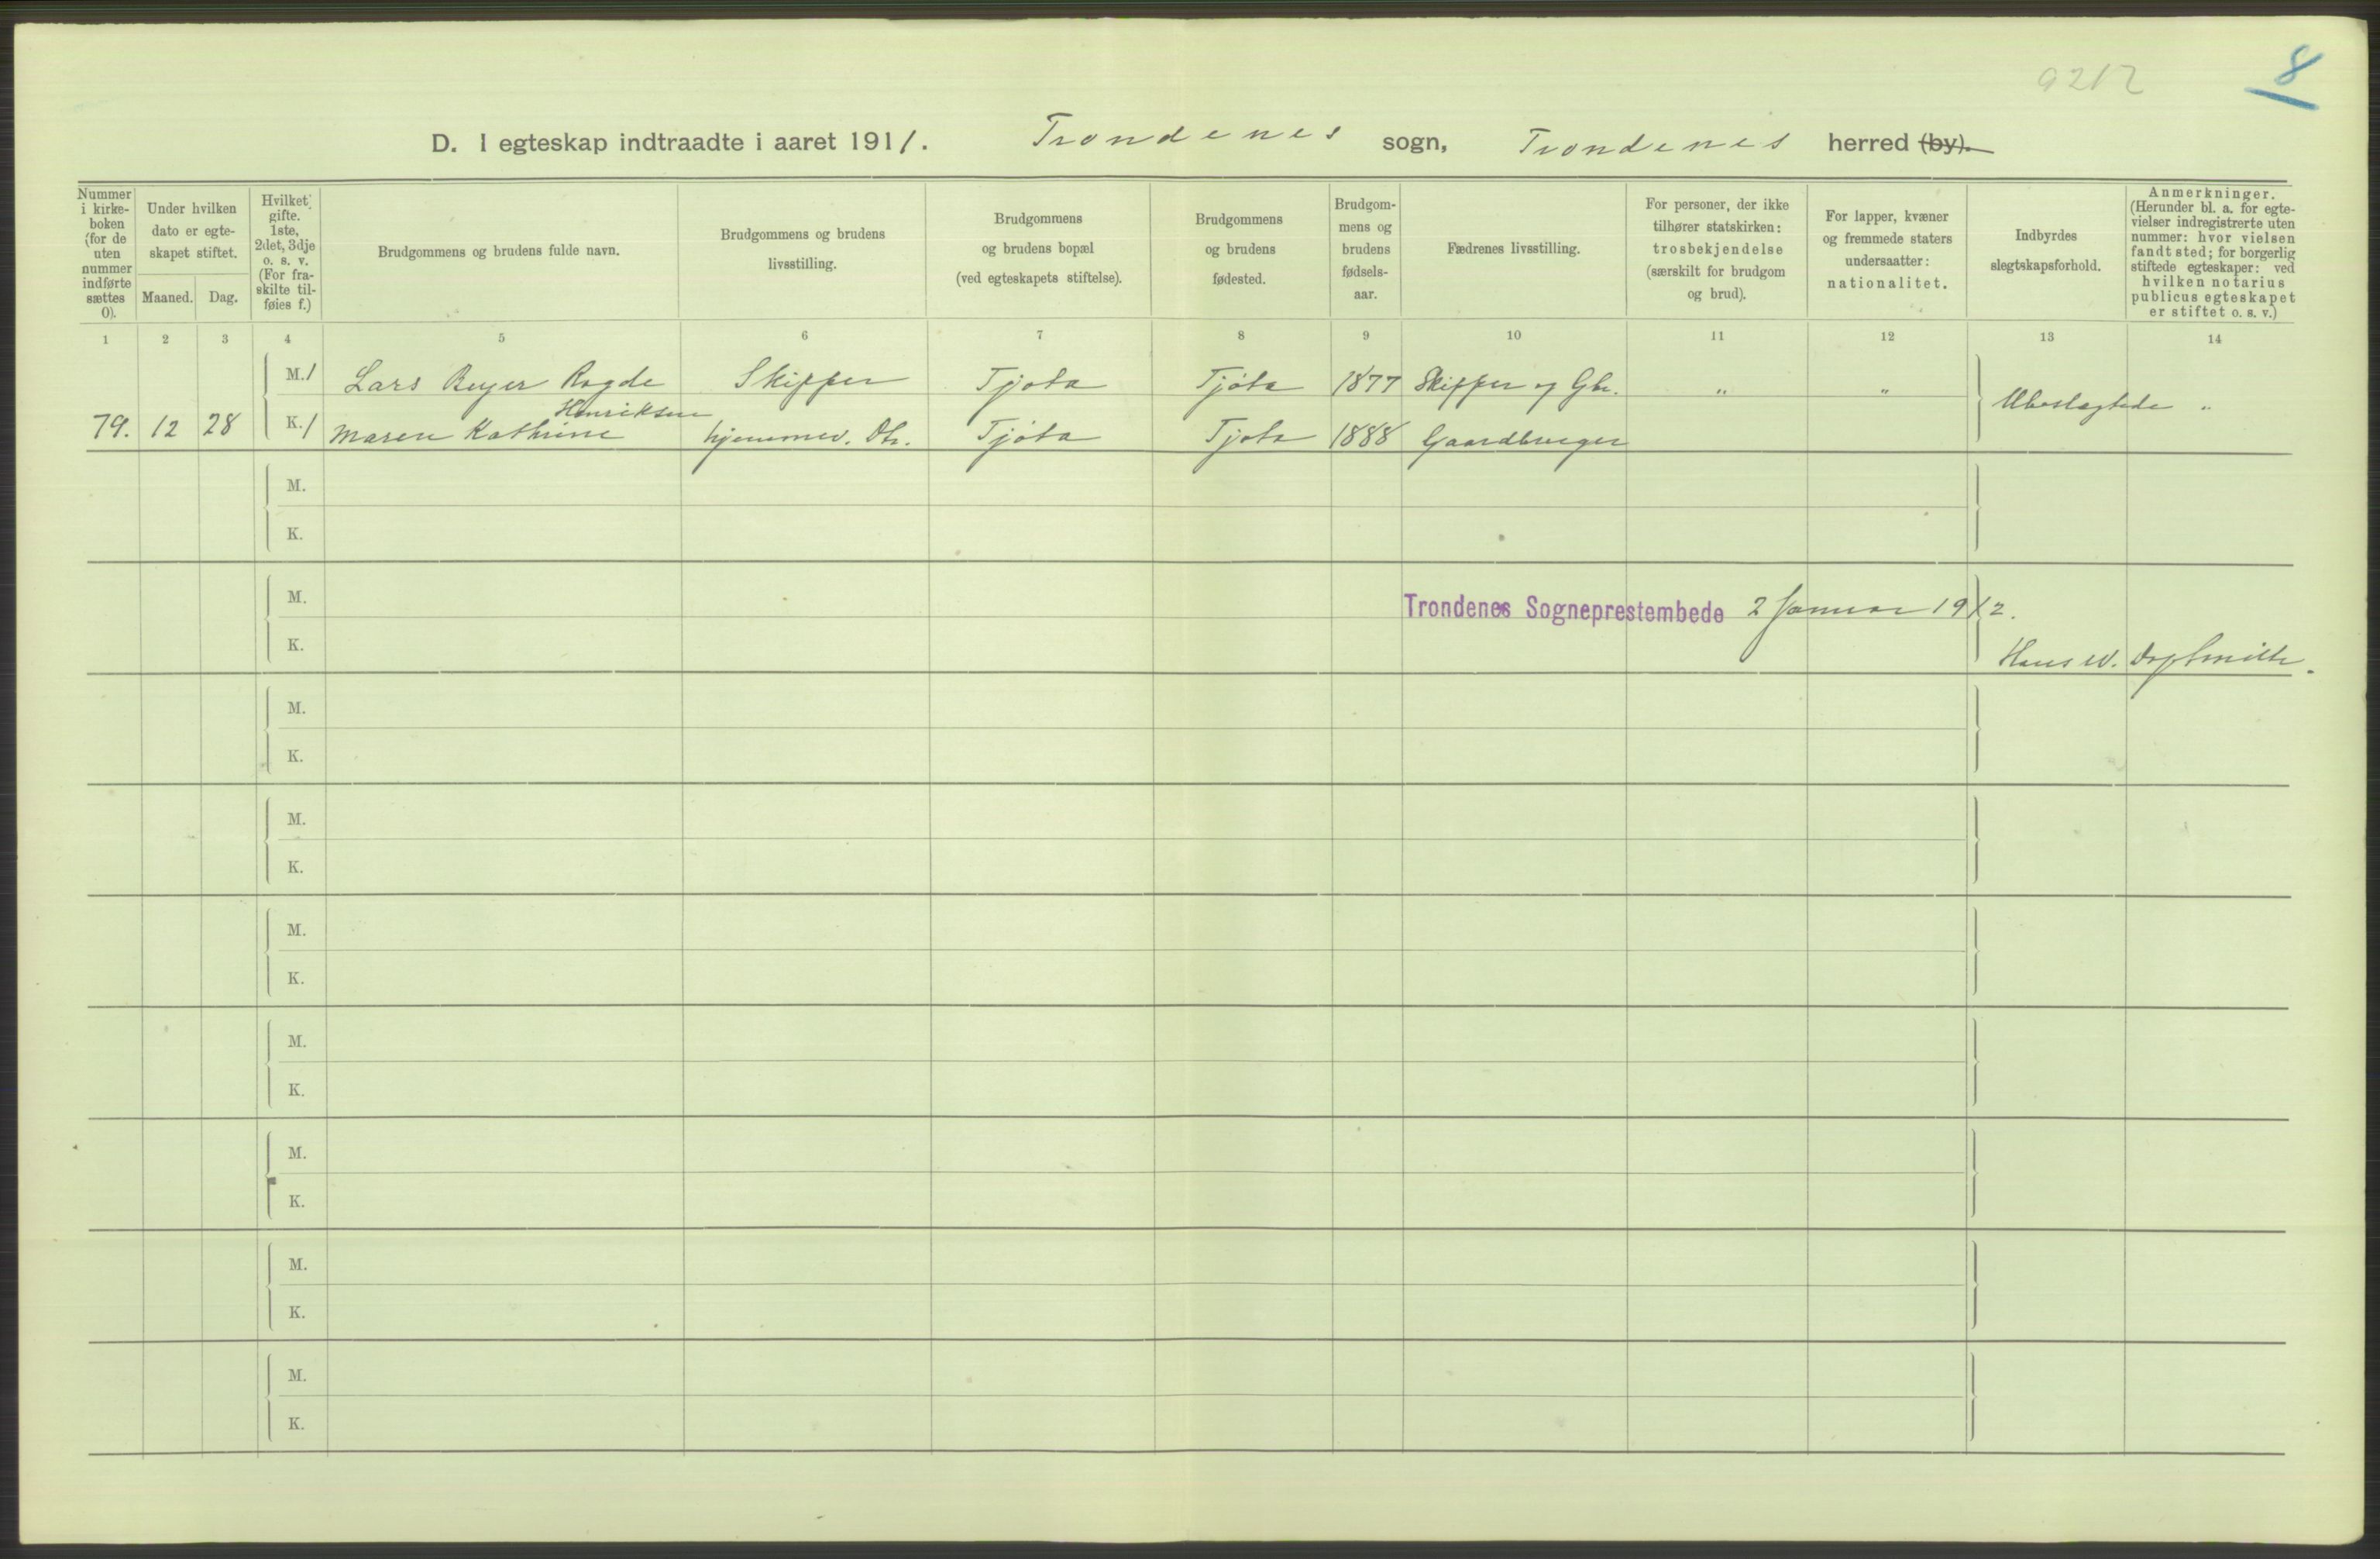 9212
8
D. I egteskap indtraadte i aaret 1911. Trondenes sogn, Trondenes herred (by).
Nummer i kirke-boken (for de uten nummer indførte sættes 0).
Under hvilken dato er egte-skapet stiftet.
Maaned. Dag.
Hvilket gifte. 1ste, 2det, 3dje o. s. v. (For fra-skilte til-føies f.)
Brudgommens og brudens fulde navn.
Brudgommens og brudens livsstilling.
Brudgommens og brudens bopæl (ved egteskapets stiftelse).
Brudgommens og brudens fødested.
Brudgom-mens og brudens fødsels-aar.
Fædrenes livsstilling.
For personer, der ikke tilhører statskirken: trosbekjendelse (særskilt for brudgom og brud).
For lapper, kvæner og fremmede staters undersaatter: nationalitet.
Indbyrdes slegtskapsforhold.
Anmerkninger. (Herunder bl. a. for egte-vielser indregistrerte uten nummer: hvor vielsen fandt sted; for borgerlig stiftede egteskaper: ved hvilken notarius publicus egteskapet er stiftet o. s. v.)
1 2 3 4 5 6 7 8 9 10 11 12 13 14
M. 1 Lars Beyer Rogde Skipper Tjøta Tjøta 1877 Skipper og Gbr. " "
Ubeslegtede "
79. 12 28 K. 1 Maren Kathrine Henriksen hjemmev. Dtr. Tjøta Tjøta 1888 Gaardbruger
M.
K.
M.
Trondenes Sogneprestembede 2 Januar 1912.
K.
Hans W.
M.
K.
M.
K.
M.
K.
M.
K.
M.
K.
M.
K.
M.
K.